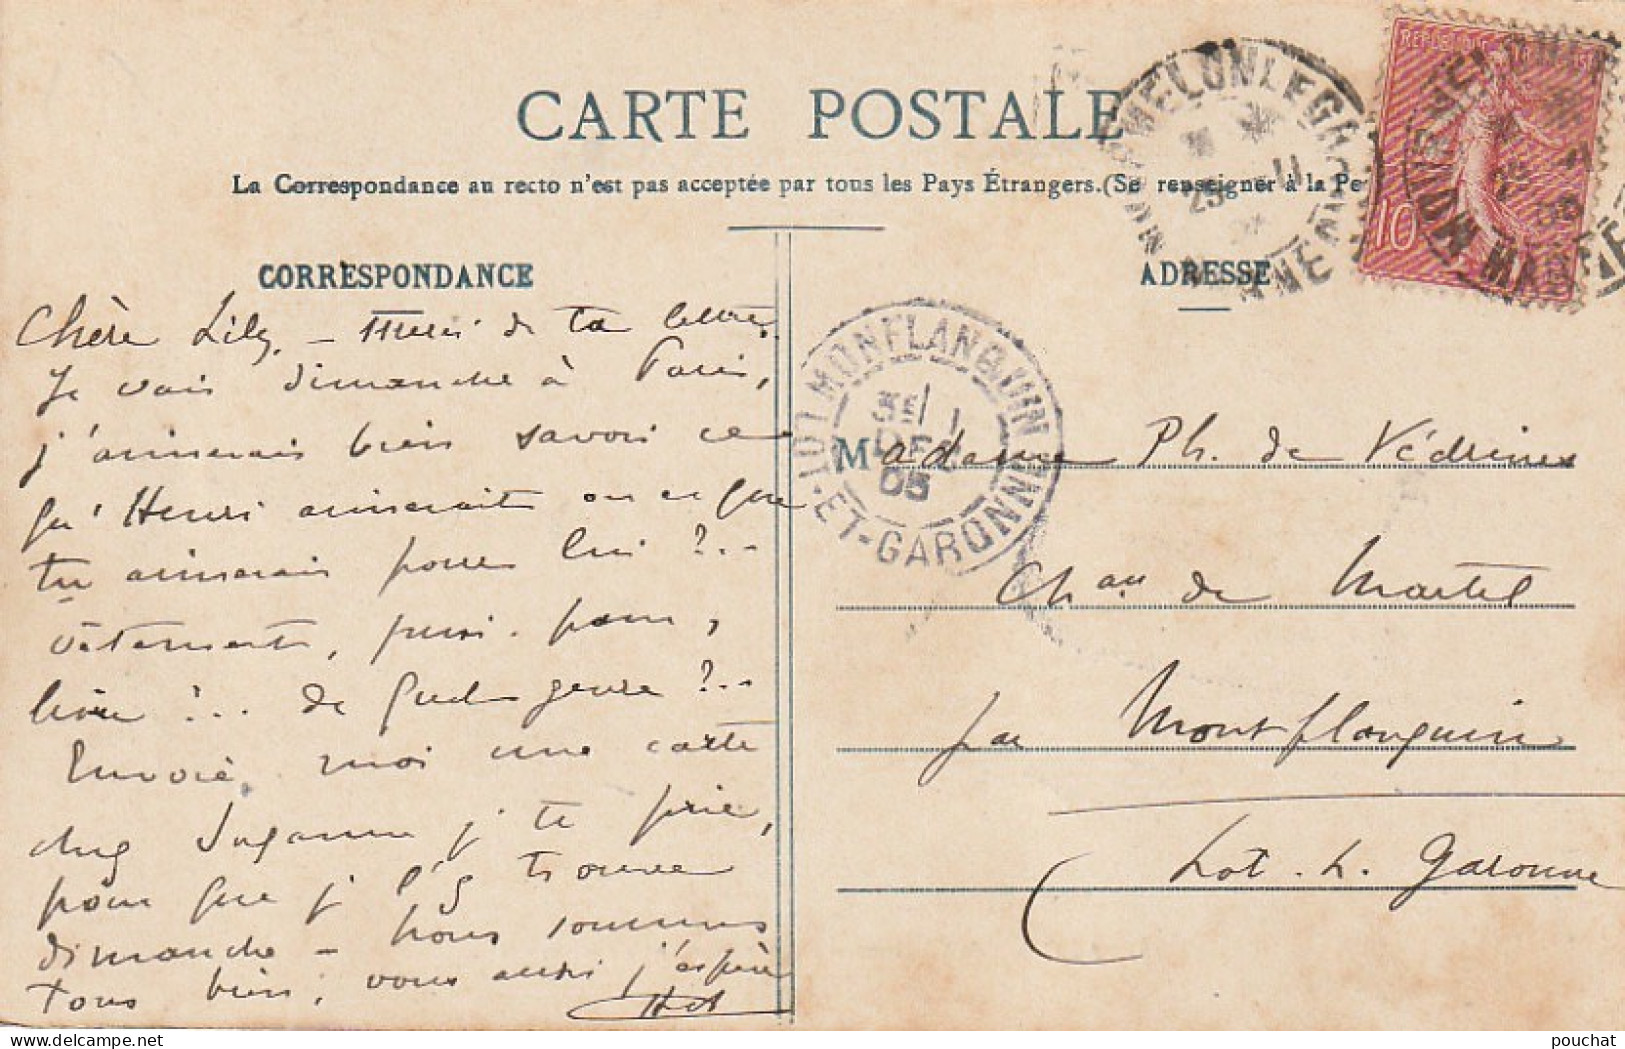 CARTE POSTALE
La Correspondance au recto n'est pas acceptée par tous les Pays Étrangers. (Se renseigner à la Po
CORRESPONDANCE
ADRESSE
Chère Lily, – Merci de ta lettre.
Je vais dimanche à Paris,
j'aimerais bien savoir ce
qu'Henri aimerait ou ce que
tu aimerais pour lui ?..
vêtements,
livre ?.. de quel genre ?..
Envoie moi une carte
chez Suzanne j te prie,
pour que j l'y trouve
dimanche – Nous sommes
tous bien, vous aussi j'espère
Madame Ph. de Védrines
Chau de Martel
par Montflanquin
Lot. &. Garonne
MOURMELON LE GRAND
MARNE
25 11
MONFLANQUIN
LOT-ET-GARONNE
1
DEC
05
10
pouchat